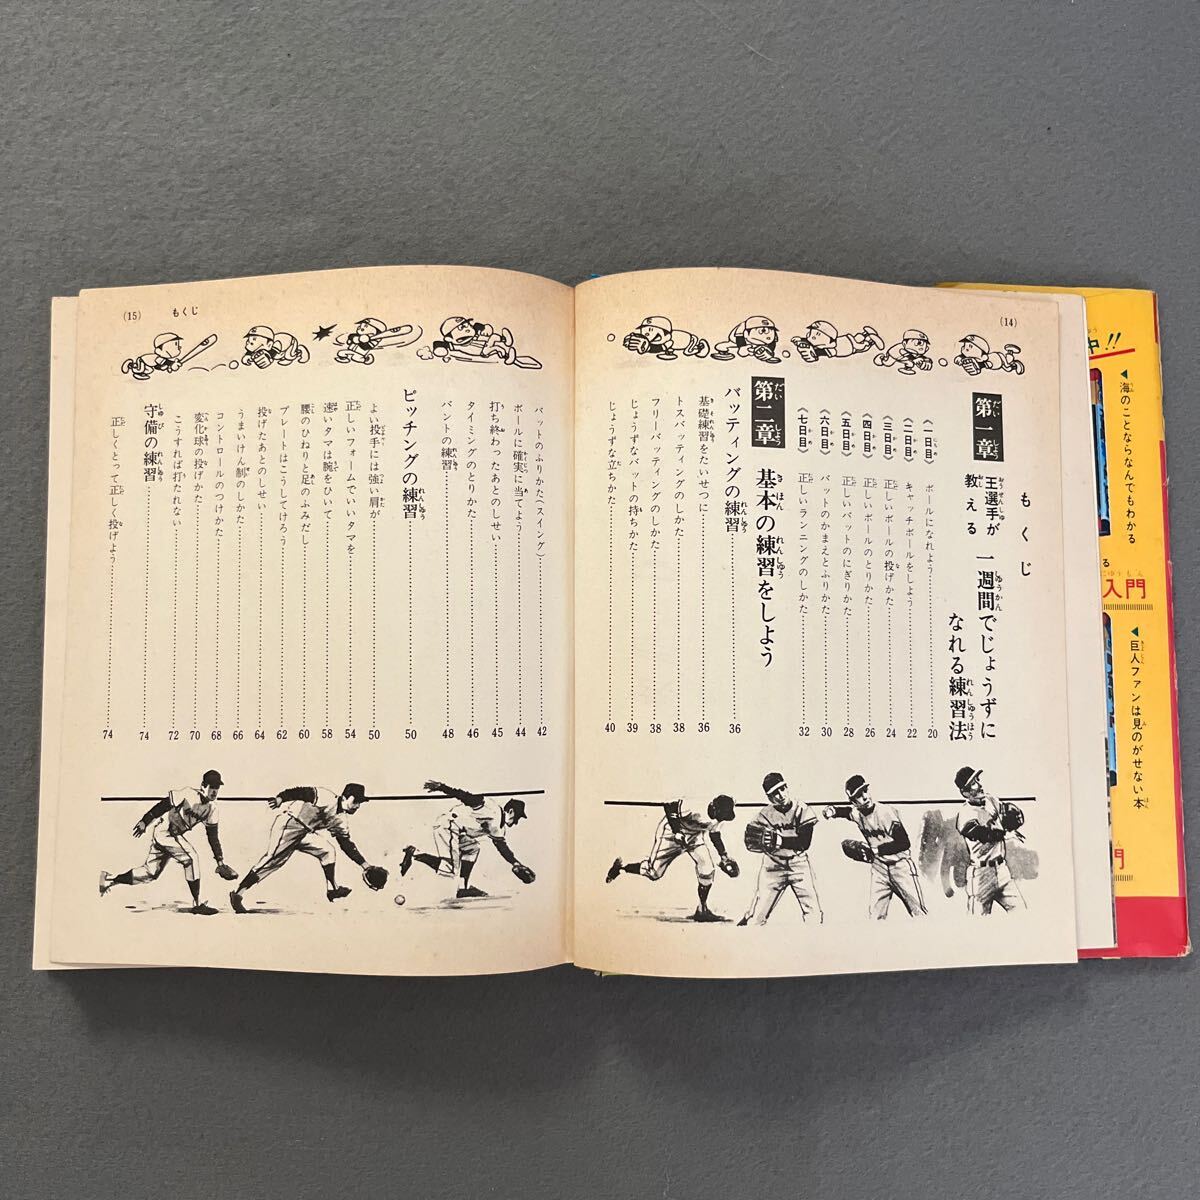 (14)
もくじ
第一章 王選手が教える 一週間でじょうずになれる練習法
(一日目) ボールになれよう 20
(二日目) キャッチボールをしよう 22
(三日目) 正しいボールの投げかた 24
(四日目) 正しいボールのとりかた 26
(五日目) 正しいバットのにぎりかた 28
(六日目) バットのかまえとふりかた 30
(七日目) 正しいランニングのしかた 32
第二章 基本の練習をしよう
バッティングの練習 36
基礎練習をたいせつに 36
トスバッティングのしかた 38
フリーバッティングのしかた 38
じょうずなバットの持ちかた 39
じょうずな立ちかた 40
(15) もくじ
バットのふりかた(スイング) 42
ボールに確実に当てよう 44
打ち終わったあとのしせい 45
タイミングのとりかた 46
バントの練習 48
ピッチングの練習 50
よい投手には強い肩が 50
正しいフォームでいいタマを 54
速いタマは腕をひいて 58
腰のひねりと足のふみだし 60
プレートはこうしてけろう 62
投げたあとのしせい 64
うまいけん制のしかた 66
コントロールのつけかた 68
変化球の投げかた 70
こうすれば打たれない 72
守備の練習 74
正しくとって正しく投げよう 74
中!!
◀海のことならなんでもわかる
入門
◀巨人ファンは見のがせない本
門